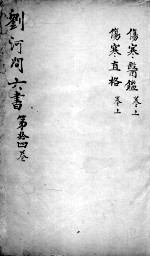 傷寒醫鑑 卷上
傷寒直格 卷上
劉河間六書 第拾四卷